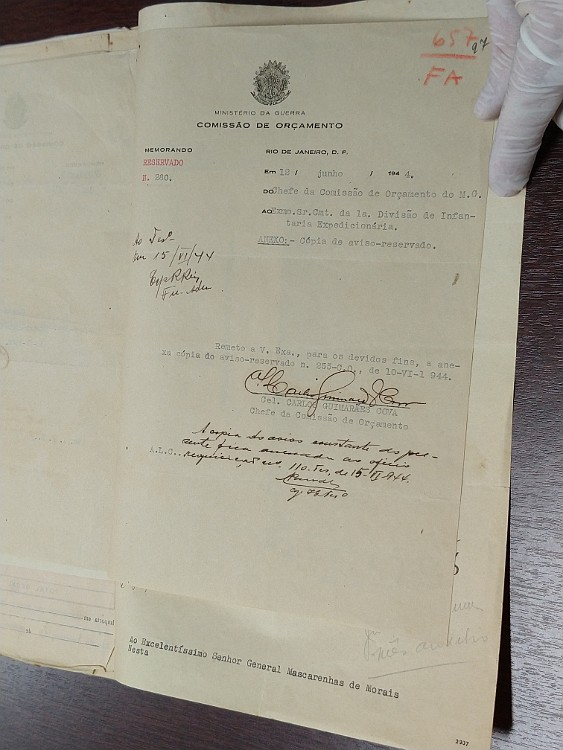 657
97
FA
MINISTÉRIO DA GUERRA
COMISSÃO DE ORÇAMENTO
MEMORANDO
RESERVADO
N. 280.
RIO DE JANEIRO, D. F.
Em 12 / junho / 1944.
DO Chefe da Comissão de Orçamento do M.G.
AO Exmo.Sr.Cmt. da 1a. Divisão de Infan-
taria Expedicionária.
ANEXO:- Cópia de aviso-reservado.
Em 15/VI/44
Remeto a V. Exa., para os devidos fins, a ane-
xa cópia do aviso-reservado n. 256-C.O., de 10-VI-1 944.
Cel. CARLOS GUIMARÃES COVA
Chefe da Comissão de Orçamento
A cópia do aviso constante do pre-
sente fica anexada ao ofício
A.L.C.. requisição nº 110.Tes, de 15-VI-944.
me abaixo
Ao Excelentíssimo Senhor General Mascarenhas de Morais
Nesta
1937